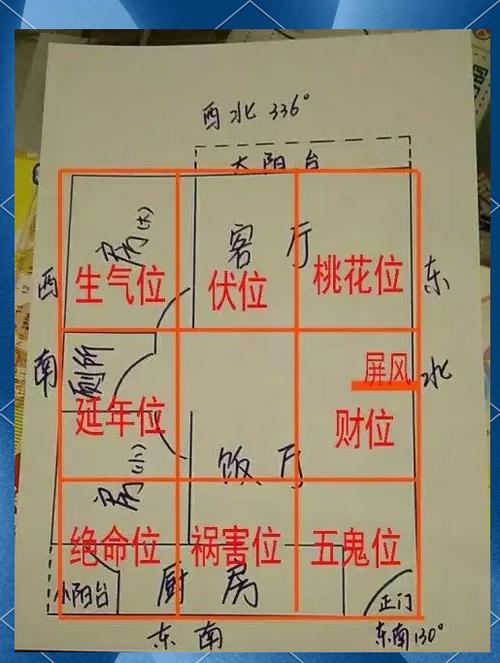 西北336°
大阳台
房(大)
客厅
西
生气位
伏位
桃花位
东
南
厕所
屏风
北
延年位
财位
房(小)
饭厅
绝命位
祸害位
五鬼位
小阳台
厨房
正门
东南
东南130°